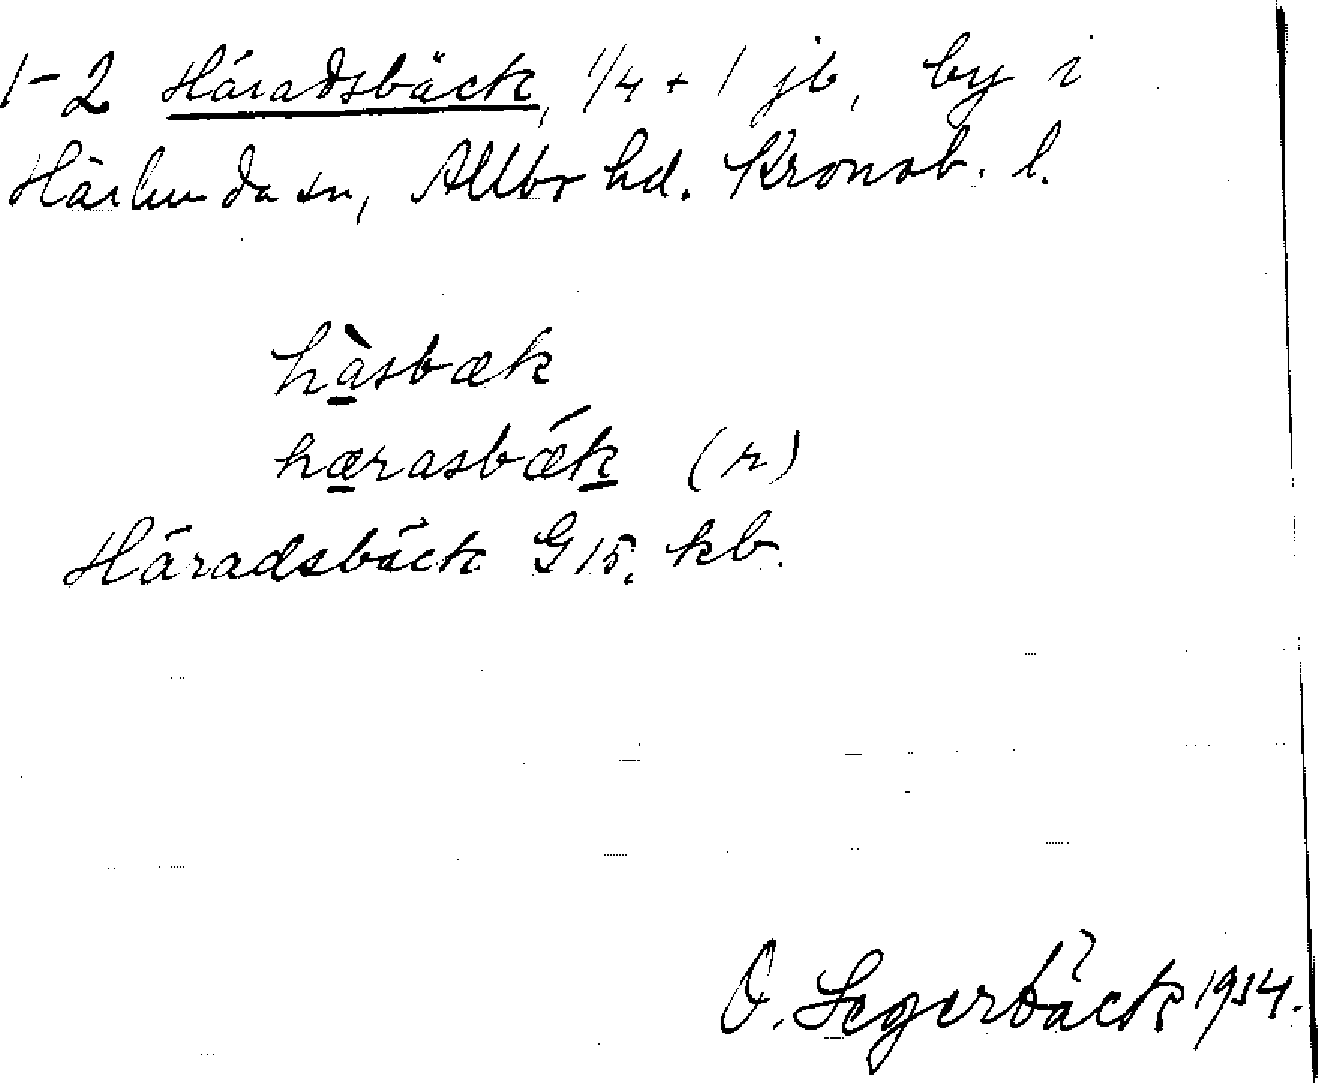 1-2 Häradsbäck, 1/4 + 1 jb, by i
Härlunda sn, Allbo hd. Kronob. l.
hàsbæk
hærasbǽk (r)
Häradsbäck G 15. kb.
O. Segerbäck 1934.